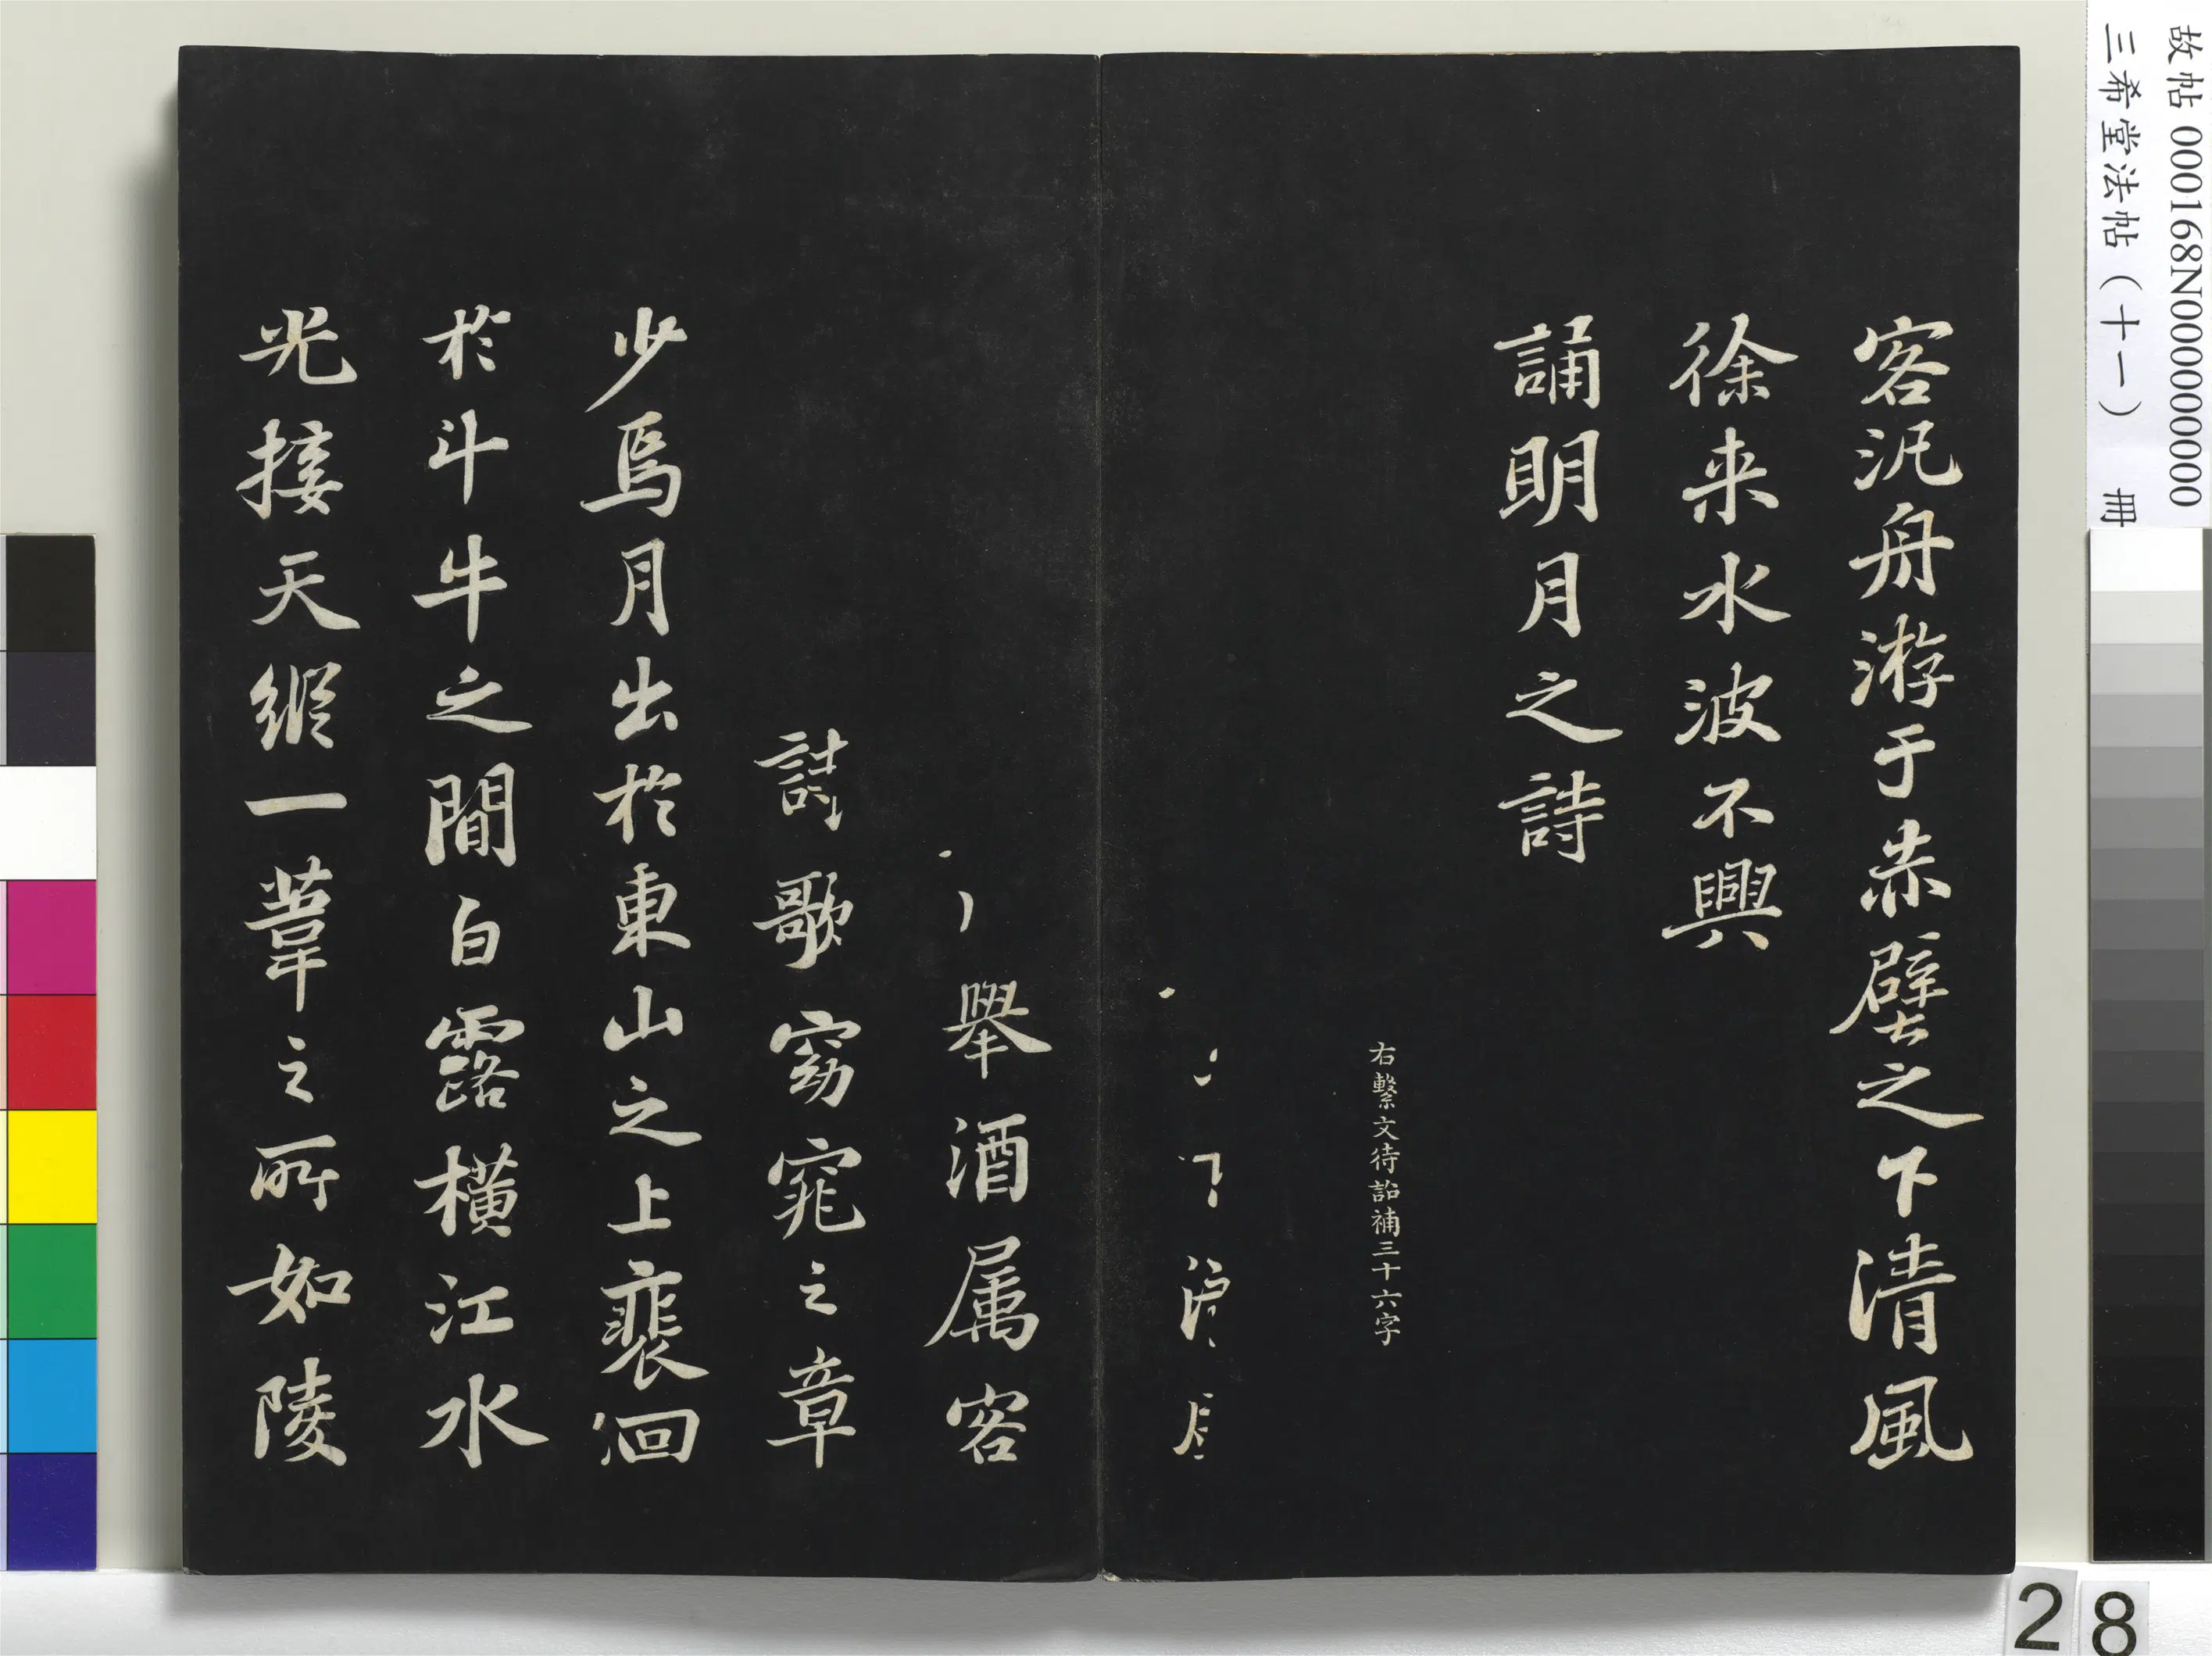 故帖 000168N000000000
三希堂法帖（十一） 冊
客汎舟游于赤壁之下清風
徐来水波不興
誦明月之詩
右繫文待詔補三十六字
舉酒属客
誦歌窈窕之章
少焉月出於東山之上裴洄
於斗牛之間白露橫江水
光接天縱一葦之所如陵
28